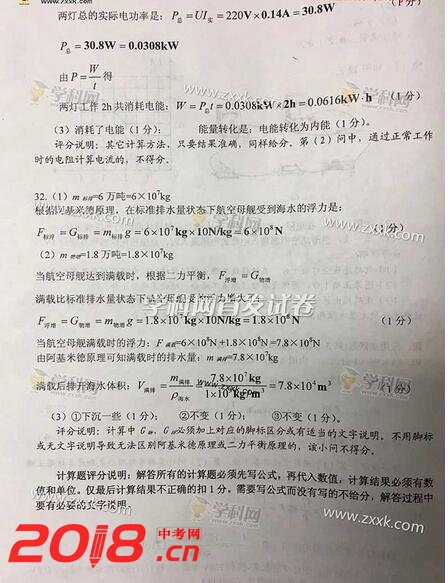 www.zxxk.com
两灯总的实际电功率是：P总=UI实=220V×0.14A=30.8W （1分）
P总=30.8W=0.0308kW
由P=W/t得
两灯工作2h共消耗电能：W=P总t=0.0308kW×2h=0.0616kW·h （1分）
（3）消耗了电能（1分）； 能量转化是：电能转化为内能（1分）。
评分说明：其它计算方法，只要结果准确，同样给分。第（2）问中，通过正常工作
时的电阻计算电流的，不得分。
32.（1）m标排=6万吨=6×10⁷kg
根据阿基米德原理，在标准排水量状态下航空母舰受到海水的浮力是：
F标浮=G标排=m标排g=6×10⁷kg×10N/kg=6×10⁸N （1分）
（2）m物增=1.8万吨=1.8×10⁷kg
当航空母舰达到满载时，根据二力平衡，F浮增=G物增
满载比标准排水量状态下
F浮增=G物增=m物增g=1.8×10⁷kg×10N/kg=1.8×10⁸N （1分）
当航空母舰满载时的浮力：F满浮=6×10⁸N+1.8×10⁸N=7.8×10⁸N
由阿基米德原理可知满载时的排水量：m满排=7.8×10⁷kg
满载后排开海水体积：V满排=m满排/ρ海水=7.8×10⁷kg/1×10³kg/m³=7.8×10⁴m³ （1分）
（3）①下沉一些（1分） ②不变（1分） ③不变（1分）。
评分说明：计算中G物、G排必须加上对应的脚标区分或有适当的文字说明。不用脚标
或无文字说明导致无法区别阿基米德原理或二力平衡原理的，该小问不得分。
计算题评分说明：解答所有的计算题必须先写公式，再代入数值，计算结果必须有数
值和单位。仅最后计算结果不正确的扣1分。需要写公式而没有写的不给分，解答过程中
要有必要的文字说明。
学科网首发试卷
学科网
www.zxxk.com
2018.cn
中考网